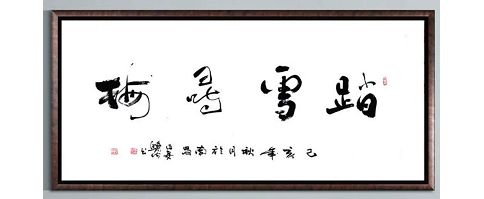 踏雪尋梅
己亥年秋月於南昌